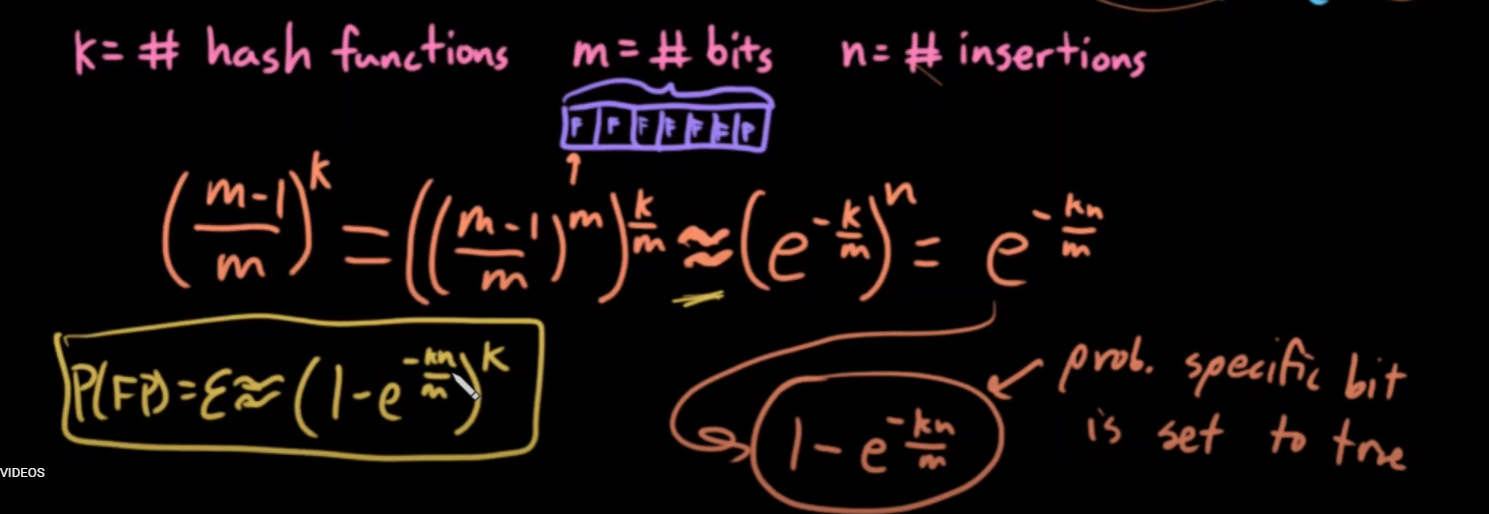 k = # hash functions m = # bits n = # insertions
F F F F F F F
((m-1)/m)^k = (((m-1)/m)^m)^(k/m) ≈ (e^(-k/m))^n = e^(-kn/m)
P(FP) = ε ≈ (1 - e^(-kn/m))^k
1 - e^(-kn/m)
prob. specific bit
is set to true
VIDEOS